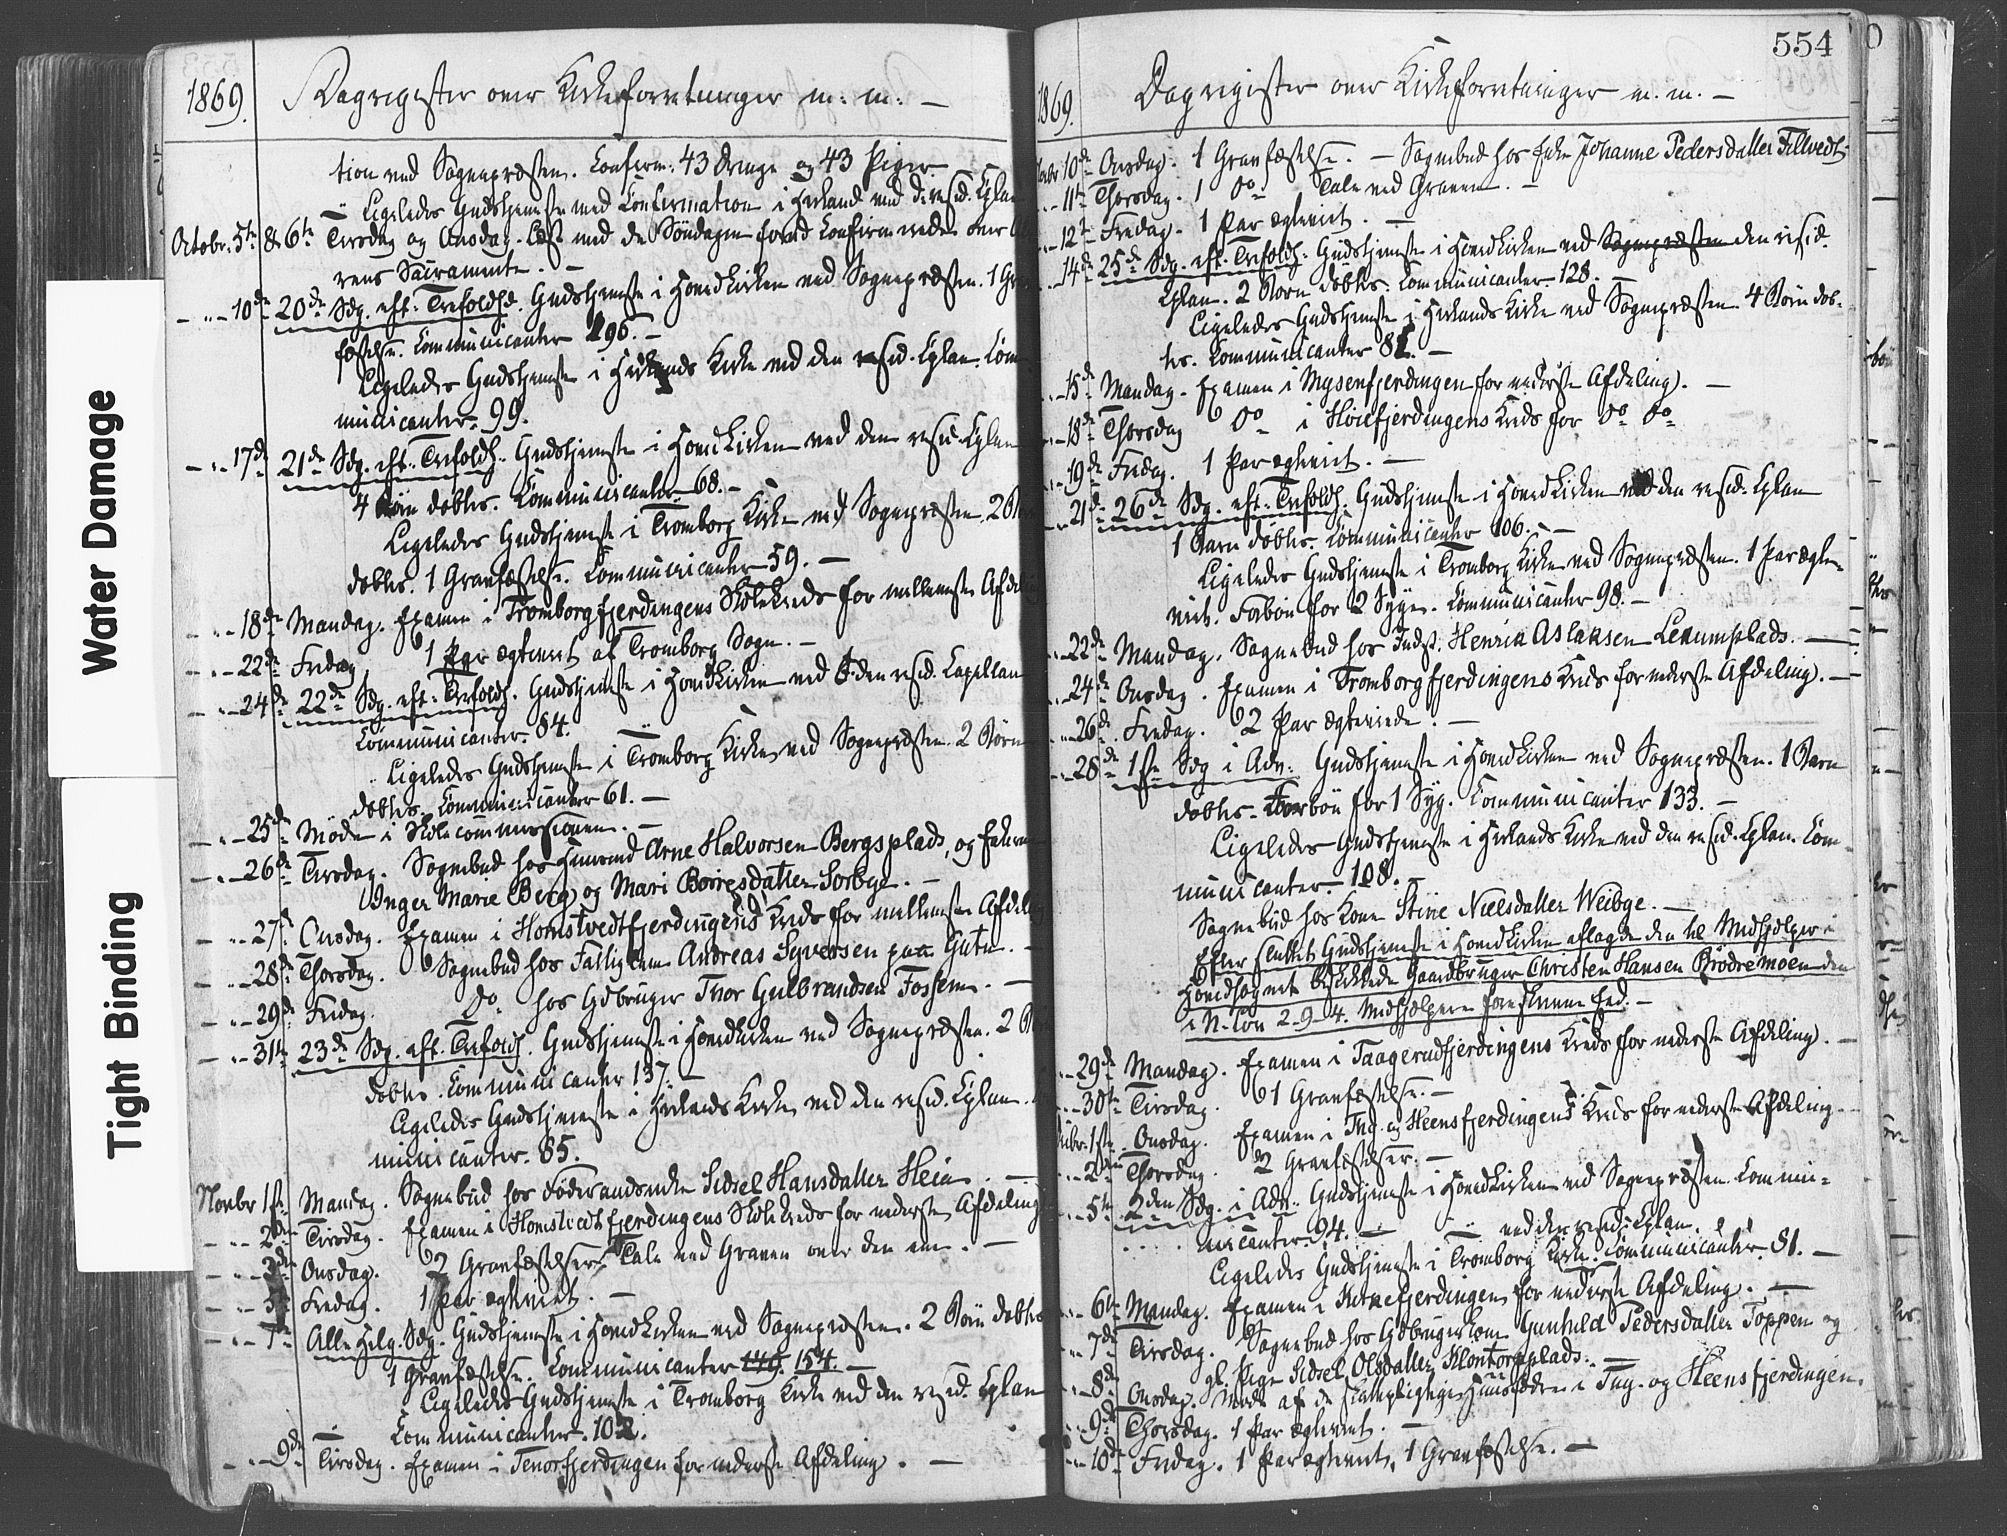 Water Damage
Tight Binding
1869. Dagregister over Kirkeforretninger m: m: —
tion ved Sognepræsten. Confirm: 43 Drenge og 43 Piger
— Ligeledes Gudstjeneste med Confirmation i Hærland ved d: resid. Cplan
Octobr. 5te & 6te Tirsdag og Onsdag. Læst med de Søndagen forud Confirmerede over
rens Sacramente. —
— „ — 10de 20de Sdg. eft. Trefoldhd. Gudstjeneste i Hovedkirken ved Sognepræsten. 1 Grav
fæstelse. Communicanter 196. —
Ligeledes Gudstjeneste i Hærlands Kirke ved den resid. Cplan. Com
municanter. 99.
— „ — 17de 21de Sdg. eft. Trefoldh. Gudstjeneste i Hovedkirken ved den resid. Cplan
4 Børn døbtes. Communicanter 68. —
Ligeledes Gudstjeneste i Trømborg Kirke ved Sognepræsten. 2 Børn
døbtes. 1 Gravfæstelse. Communicanter 59. —
— „ — 18de Mandag. Examen i Trømborgfjerdingens Skolekreds for mellemste Afdeling
— „ — 22de Fredag 1 Par ægteviet af Trømborg Sogn. —
— „ — 24de 22de Sdg. eft. Trefoldh. Gudstjeneste i Hovedkirken ved den resid. Capellan
Communicanter. 84.
Ligeledes Gudstjeneste i Trømborg Kirke ved Sognepræsten. 2 Børn
døbtes. Communicanter 61. —
— „ — 25de Møde i Skolecommissionen. —
— „ — 26de Tirsdag. Sognebud hos Huusmd Arne Halvorsen Bergsplads, og
Inger Marie Berg og Mari Børresdatter Sorbye. —
— „ — 27de Onsdag. Examen i Homstvedtfjerdingens Kreds for mellemste Afdeling
— „ — 28de Thorsdag. Sognebud hos Fattiglem Andreas Syversen paa Guten. —
— „ — 29de Fredag. Do hos Gdbruger Thor Gulbrandsen Fossem. —
— „ — 31te 23de Sdg. eft. Trefoldh. Gudstjeneste i Hovedkirken ved Sognepræsten. 2 Børn
døbtes. Communicanter 137. —
Ligeledes Gudstjeneste i Hærlands Kirke ved den resid. Cplan.
municanter. 85.
Novbr 1ste Mandag. Sognebud hos Føderaadsenke Sidsel Hansdatter Heia. —
— „ — 2den Tirsdag. Examen i Homstvedtfjerdingens Skolekreds for nederste Afdeling
— „ — 3die Onsdag. 2 Gravfæstelser. Tale ved Graven over den ene. —
— „ — 5te Fredag. 1 Par ægteviet. —
— „ — 7de Alle Helg. Sdg. Gudstjeneste i Hovedkirken ved Sognepræsten. 2 Børn døbtes
1 Gravfæstelse. Communicanter 149. 154. —
Ligeledes Gudstjeneste i Trømborg Kirke ved den resid. Cplan
Communicanter. 102.
— „ — 9de Tirsdag. Examen i Tenorfjerdingen for nederste Afdeling. —
554
1869. Dagregister over Kirkeforretninger m. m. —
Novbr 10de Onsdag. 1 Gravfæstelse. — Sognebud hos Enke Johanne Pedersdatter Fillvedt
„ — 11te Thorsdag. 1 Do — Tale ved Graven. —
„ — 12te Fredag. 1 Par ægteviet. —
„ — 14de 25de Sdg. eft. Trefoldh. Gudstjeneste i Hovedkirken ved Sognepræsten den resid.
Cplan. 2 Børn døbtes. Communicanter 128. —
Ligeledes Gudstjeneste i Hærlands Kirke ved Sognepræsten. 4 Børn døb-
tes. Communicanter 81. —
„ — 15de Mandag. Examen i Mysenfjerdingen for nederste Afdeling. —
„ — 18de Thorsdag Do i Hvilefjerdingens Kreds for Do Do
„ — 19de Fredag. 1 Par ægteviet. —
„ — 21de 26de Sdg. eft. Trefoldh. Gudstjeneste i Hovedkirken ved den resid. Cplan
1 Barn døbtes. Communicanter 106. —
Ligeledes Gudstjeneste i Trømborg Kirke ved Sognepræsten. 1 Par ægte-
viet. Forbøn for 2 Syge. Communicanter 98. —
„ — 22de Mandag. Sognebud hos Indst. Henrik Aslaksen Lekumplads. —
„ — 24de Onsdag. Examen i Trømborgfjerdingens Kreds for nederste Afdeling. —
„ — 26de Fredag. 2 Par ægteviede. —
„ — 28de 1ste Sdg i Adv: Gudstjeneste i Hovedkirken ved Sognepræsten. 1 Barn
døbtes. Forbøn for 1 Syg. Communicanter 133. —
Ligeledes Gudstjeneste i Hærlands Kirke ved den resid. Cplan. Com
municanter. 108. —
Sognebud hos Kone Stine Nielsdatter Weibye. —
Efter sluttet Gudstjeneste i Hovedkirken aflagde den til Medhjelper i
Hovedsognet beskikkede Gaardbruger Christen Hansen Brødremoen den
i N. Lov 2-9-4. Medhjelpere foreskrevne Eed. —
„ — 29de Mandag. Examen i Taagerudfjerdingens Kreds for nederste Afdeling. —
„ — 30te Tirsdag. 1 Gravfæstelse. —
Decbr. 1ste Onsdag. Examen i Ing- og Heensfjerdingens Kreds for nederste Afdeling.
„ — 2den Thorsdag. 2 Gravfæstelser. —
„ — 5te 2den Sdg. i Adv. Gudstjeneste i Hovedkirken ved Sognepræsten. Commu-
nicanter. 94. — — ved den resid. Cplan.
Ligeledes Gudstjeneste i Trømborg Kirke. Communicanter. 81. —
„ — 6te Mandag. Examen i Kirkefjerdingen for nederste Afdeling. —
„ — 7de Tirsdag. Sognebud hos Gdbrugerkone Gunhild Pedersdatter Toppen og
gl. Pige Sidsel Olsdatter Klontorpplads. —
„ — 8de Onsdag. Møde af de skatpligtige Huusfædre i Ing- og Heensfjerdingen.
„ — 9de Thorsdag. 1 Par ægteviet. —
„ — 10de Fredag. 1 Par ægteviet, 1 Gravfæstelse. —